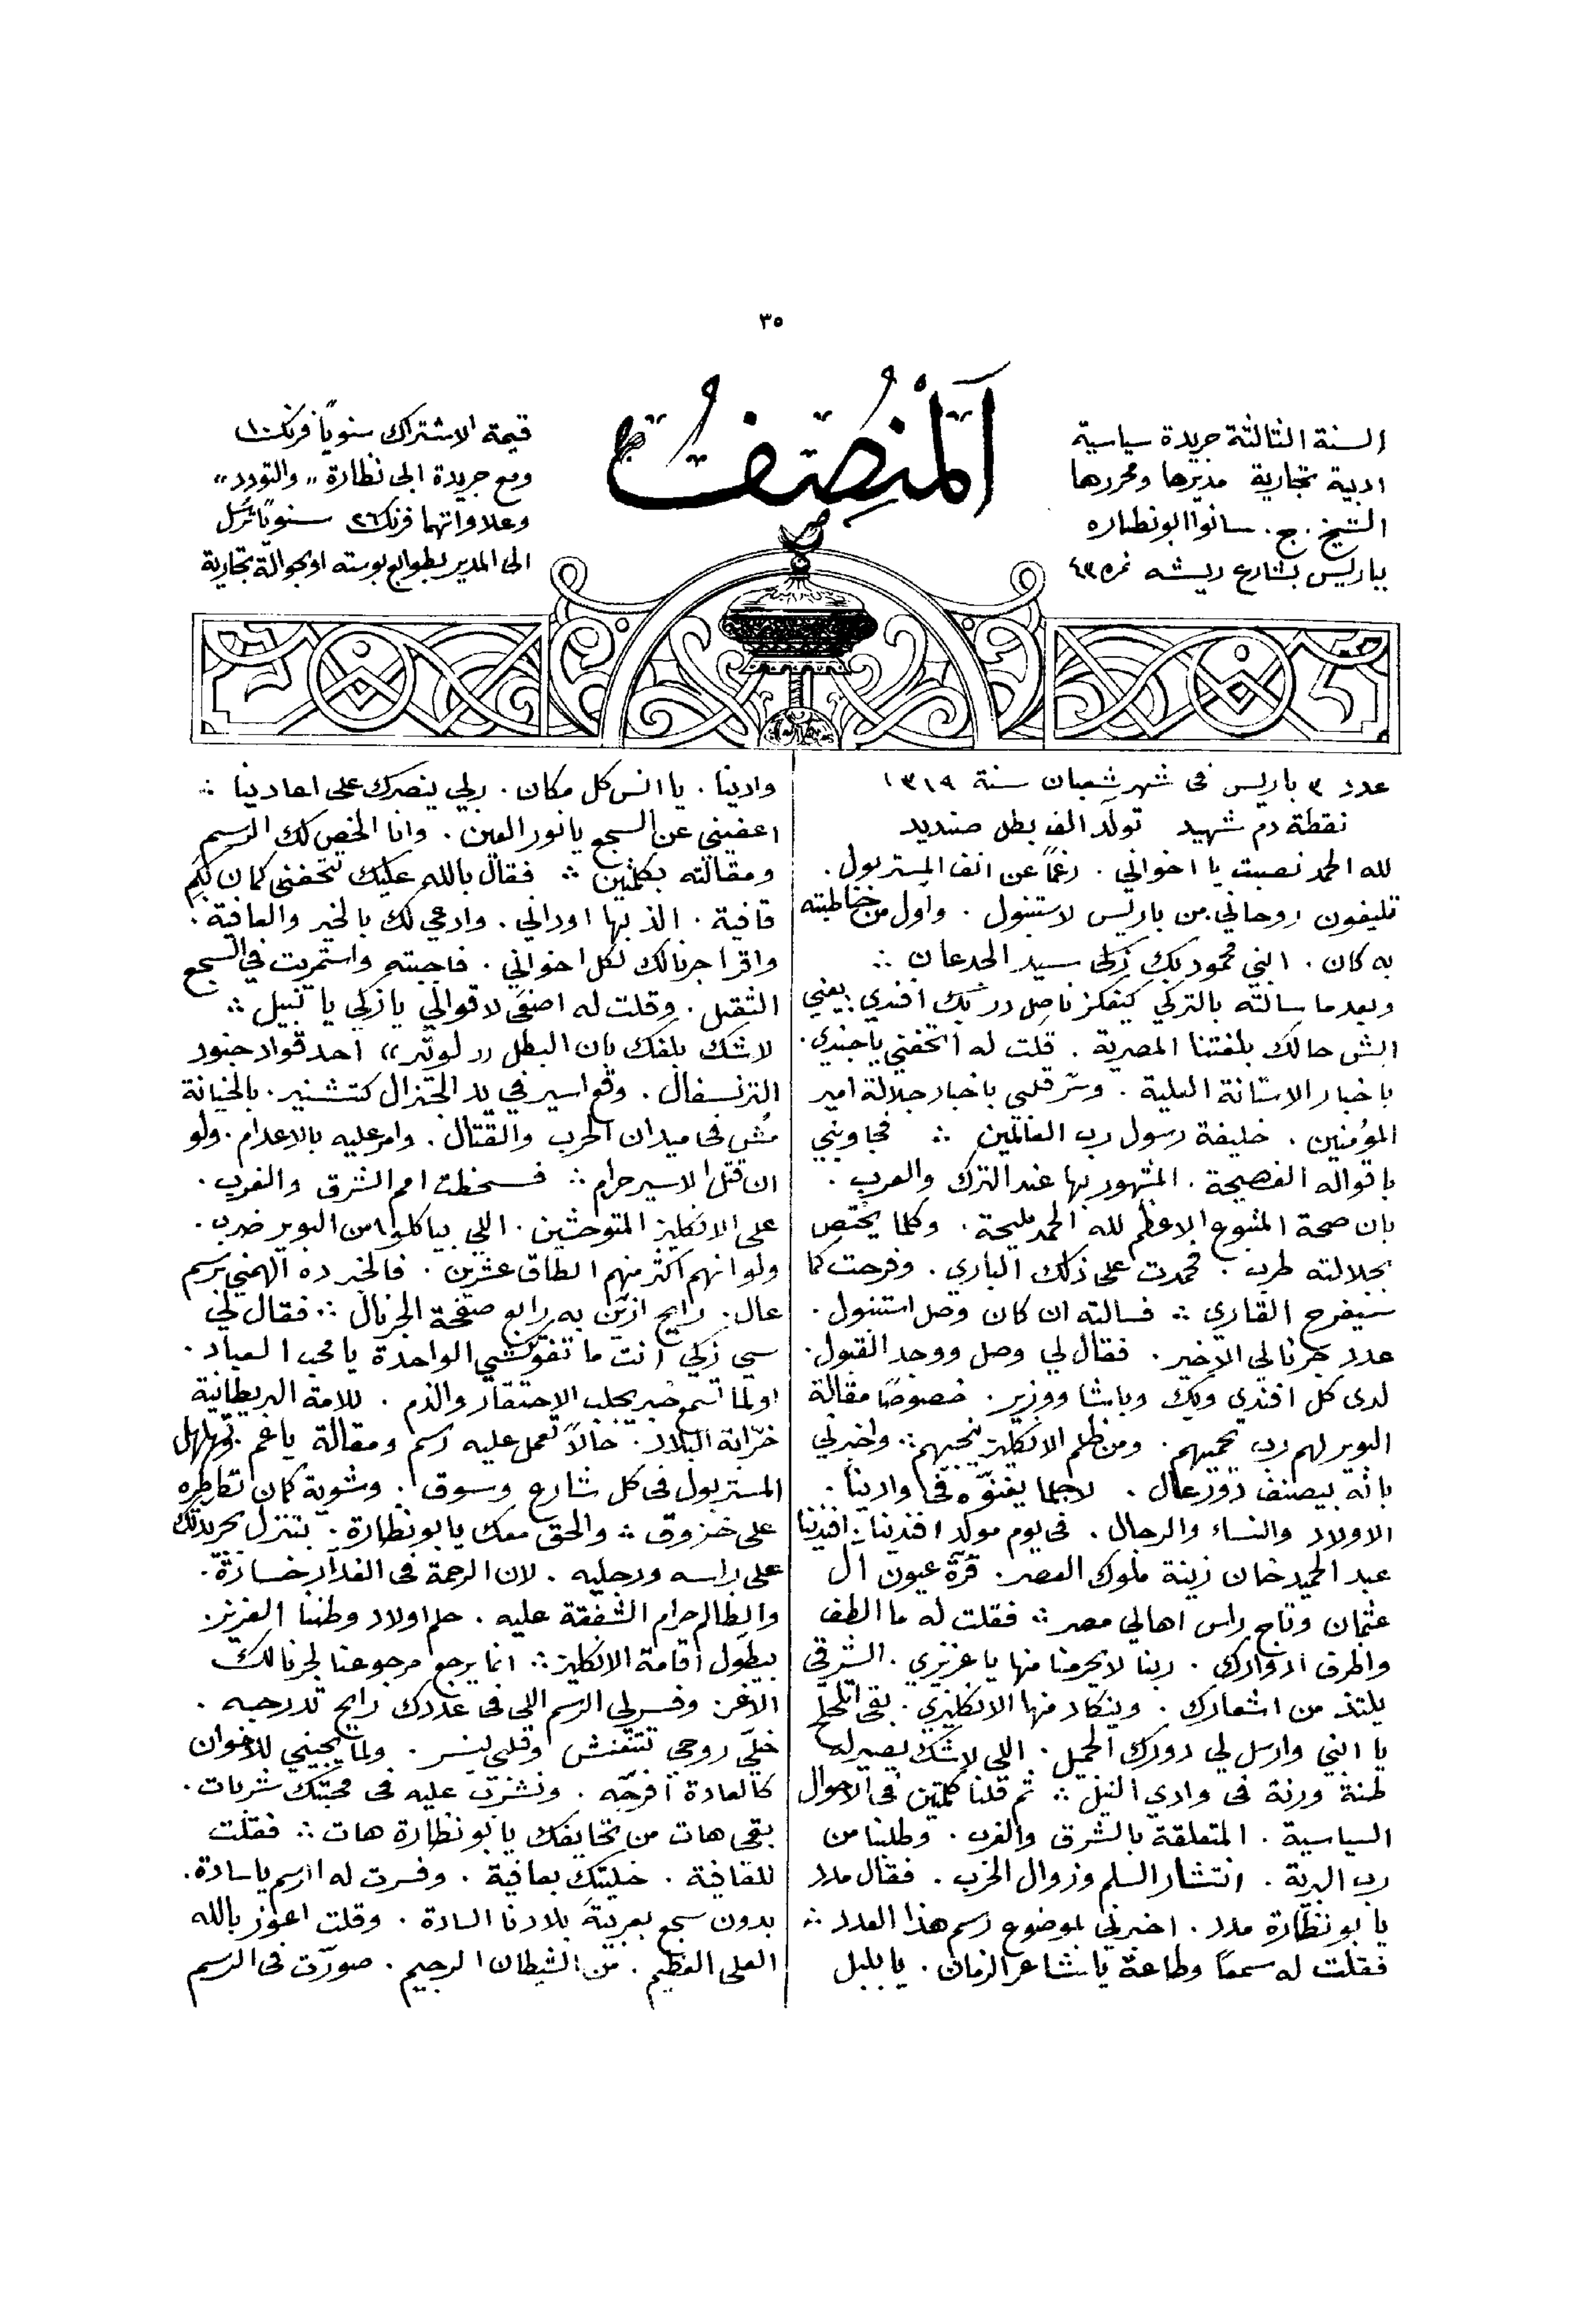 ٣٥
المنصف
السنة الثالثة جريدة سياسية
ادبية تجارية مديرها ومحررها
الشيخ . ج . سانوا ابو نظاره
بباريس بشارع ريشه نمره ٤٣
قيمة الاشتراك سنوياً فرنك ١٠
ومع جريدة ابي نظارة ,, والتودد ,,
وعلاواتهما فرنك ٢٦ سنوياً ترسل
الى المدير بطوابع بوسته او بحوالة تجارية
عدد ٣ باريس فى شهر شعبان سنة ١٣١٩
نقطة دم شهيد تولّد الف بطل صنديد
لله الحمد نصبت يا اخواني . رغماً عن انف المستر بول .
تليفون روحاني من باريس لاستنبول . واول من خاطبته
به كان . ابني محمود بك زكى سيد الجدعان ⁘
وبعد ما سالته بالتركي كيفكز ناصل در بك افندي . يعني
ايش حالك بلغتنا المصرية . قلت له اتحفني يا جندي .
باخبار الاستانة العلية . وسر قلبي باخبار جلالة امير
المؤمنين . خليفة رسول رب العالمين ⁘ فجاوبني
باقواله الفصيحة . المشهور بها عند الترك والعرب .
بان صحة المتبوع الاعظم لله الحمد مليحة . وكلما يختص
بجلالته طرب . فحمدت على ذلك الباري . وفرحت كما
سيفرح القاري ⁘ فسالته ان كان وصل استنبول .
عدد جرنالي الاخير . فقال لي وصل ووجد القبول .
لدى كل افندي وبك وباشا ووزير . خصوصاً مقالة
البوير لهم رب يحميهم . ومن ظلم الانكليز ينجيهم ⁘ واخبرني
بانه بيصنف دور عال . لاجلما يغنوّه فى وادينا .
الاولاد والنساء والرجال . فى يوم مولد افندينا . افندينا
عبد الحميد خان زينة ملوك العصر . قرّة عيون ال
عثمان وتاج راس اهالي مصر ⁘ فقلت له ما الطف
واظرف ادوارك . ربنا لا يحرمنا منها يا عزيزي . الشرقي
يلتذ من اشعارك . وينكاد منها الانكليزي . بقى اتلحلح
يا ابني وارسل لي دورك الجميل . اللي لا شك يصير له
طنة ورنة فى وادي النيل ⁘ ثم قلنا كلمتين فى الاحوال
السياسية . المتعلقة بالشرق والغرب . وطلبنا من
رب البرية . انتشار السلم وزوال الحرب . فقال مدد
يا بو نظّارة مدد . اخبرني بموضوع رسم هذا العدد ⁘
فقلت له سمعاً وطاعة يا شاعر الزمان . يا بلبل
وادينا . يا انس كل مكان . ربي ينصرك على اعادينا ⁘
اعفيني عن السجع يا نور العين . وانا الخص لك الرسم
ومقالته بكلمتين ⁘ فقال بالله عليك تتحفني كمان بكم
قافية . الذ بها اوداني . وادعي لك بالخير والعافية .
واقرا جرنالك لكل اخواني . فاجبته واستمريت في السجع
الثقيل . وقلت له اصغى لاقوالي يا زكي يا نبيل ⁘
لا شك بلغك بان البطل ,, لوتر ,, احد قواد جنود
الترنسفال . وقع اسير في يد الجنرال كتشنير . بالخيانة
مُش فى ميدان الحرب والقتال . وامر عليه بالاعدام . ولو
ان قتل الاسير حرام ⁘ فسخطت امم الشرق والغرب .
على الانكليز المتوحشين . اللي بياكلوا من البوير ضرب .
ولو انهم اكثر منهم الطاق عشرين . فالخبر ده الهمني برسم
عال . رايح ازيّن به رابع صفحة الجرنال ⁘ فقال لي
سي زكي انت ما تفوتكشي الواحدة يا محب العباد .
اولما تسمع خبر يجلب الاحتقار والذم . للامة البريطانية
خرّابة البلاد . حالاً تعمل عليه رسم ومقالة يا عم . تهلهل
المستر بول فى كل شارع وسوق . وشوية كمان تكاطره
على خزوق ⁘ والحق معك يا بو نظارة . بتنزل بجريدتك
على راسه ورجليه . لان الرحمة فى الغدار خسارة .
والظالم حرام الشفقة عليه . حلم اولاد وطننا العزيز .
بيطوّل اقامة الانكليز ⁘ انما يرجع مرجوعنا لجرنالك
الاغر . وفسر لي الرسم اللي فى عددك رايح تدرجه .
خلّي روحي تنتعش وقلبي ينسر . ولما يجيني للاخوان
كالعادة افرجّه . ونشرب عليه فى محبتك شربات .
بقى هات من تحايفك يا بو نظارة هات ⁘ فقلت
للقافية . خليتك بعافية . وفسرت له الرسم يا سادة .
بدون سجع بعربية بلادنا السادة . وقلت اعوذ بالله
العلى العظيم . من الشيطان الرجيم . صورّت فى الرسم